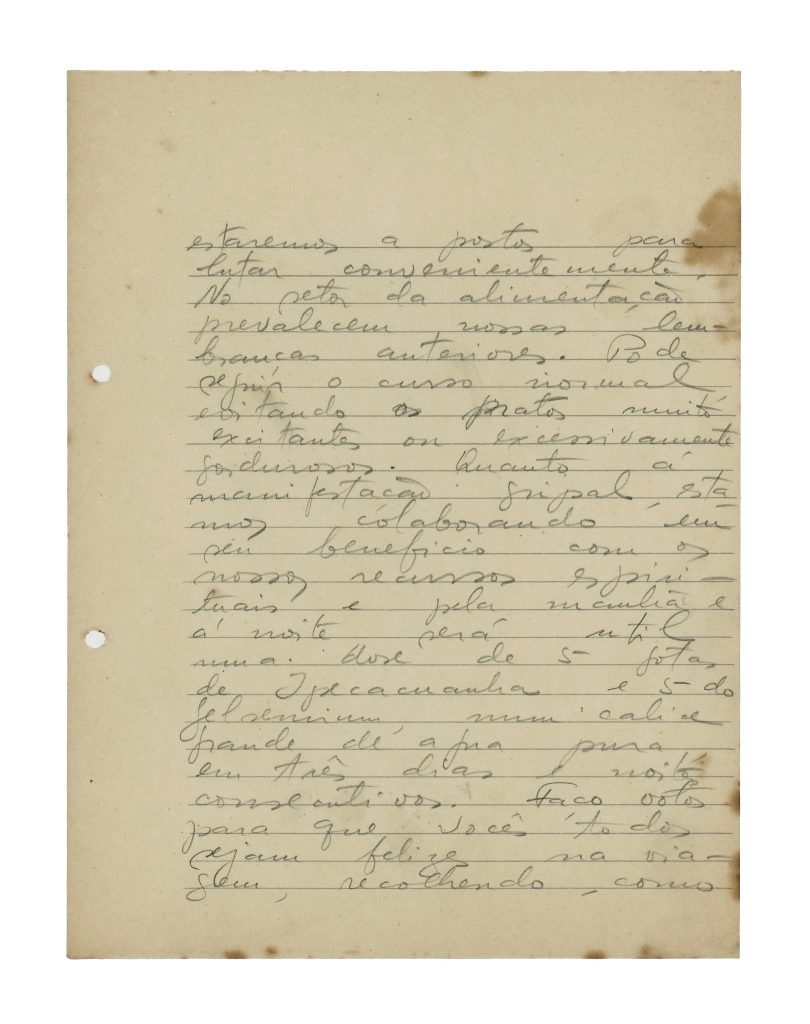 estaremos a postos para
lutar convenientemente.
No setor da alimentação
prevalecem nossas lem-
branças anteriores. Póde
seguir o curso normal
evitando os pratos muito
excitantes ou excessivamente
gordurosos. Quanto á
manifestação gripal, esta
mos colaborando em
seu beneficio com os
nossos recursos espiri-
tuais e pela manhã e
á noite será util
uma dose de 5 gotas
de Ipecacuanha e 5 do
Gelsemium num calice
grande de agua pura
em três dias e noites
consecutivos. Faço votos
para que vocês todos
sejam felizes na via-
gem, recolhendo, como